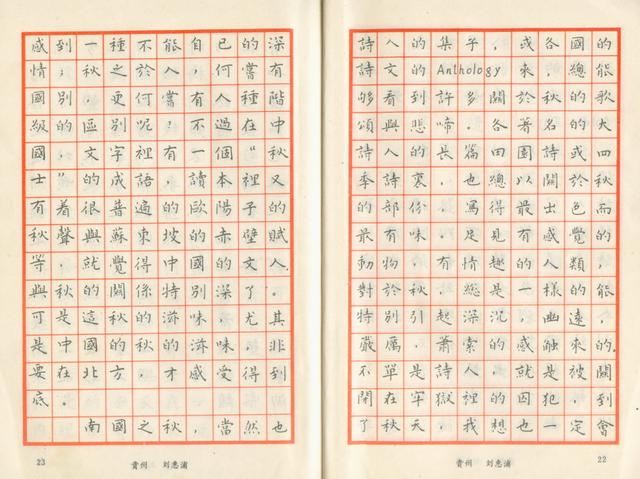 詩人的集子，或各國的
詩文的Anthology來，總能
够看到許多關於秋的歌
頌與悲啼。各著名的大
詩人的長篇田園詩或四
季詩裏，也總以關於秋
的部份，寫得最出色而
最有味。足見有感覺的
動物，有情趣的人類，
對於秋，總是一樣的能
特別引起深沉，幽遠，
嚴厲，蕭索的感觸來的.
不單是詩人，就是被關
閉在牢獄裡的囚犯，到
了秋天，我想也一定會
貴州 刘惠浦
22
感到一種不能自已的深
情；秋之於人，何嘗有
國別，更何嘗有人種階
級的區別呢？不過在中
國，文字裡有一個“秋
士”的成語，讀本裡又
有着很普遍的歐陽子的
秋聲與蘇東坡的赤壁賦
等，就覺得中國的文人.
與秋的關係特別深了。
可是這秋的滋味，尤其
是中國的秋的滋味，非
要在北方，才感受得到
底。
南國之秋，當然也
23
貴州 刘惠浦